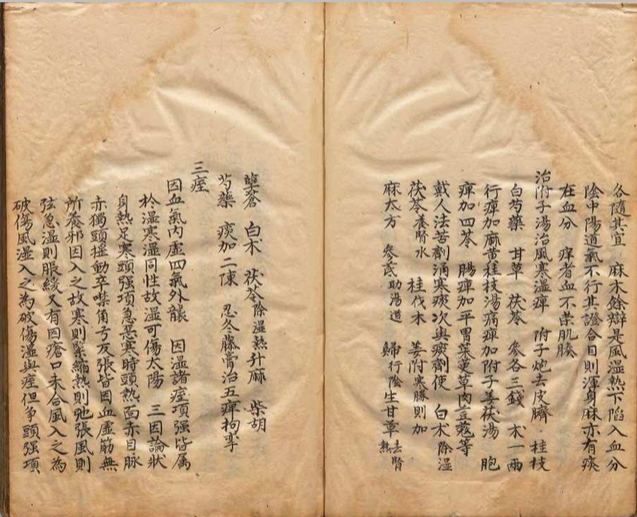 各隨其宜 麻木餘辯是風温熱下陷入血分
陰中陽道氣不行其證合目則渾身麻亦有痰
在血分 痒者血不荣肌腠
治附子湯治風寒溫痺 附子炮去皮臍 桂枝
白芍藥 甘草 茯苓 參各三錢 术一兩
行痺加麻黄桂枝湯痛痺加附子姜茯湯 胞
痺加四苓 腸痺加平胃茱萸草肉豆蔻等
戴人法苦劑涌寒痰次與痰劑便 白术除溫
茯苓養腎水 桂伐木 姜附寒勝則加
麻太方 參芪助湯道 歸行陰生甘草去腎熱
蒼 白术 茯苓除温熱升麻 柴胡
芍藥 痰加二陳 忍冬藤膏治五痺拘攣
三痓
因血氣内虛四氣外襲 因温諸痓項强皆属
於温寒温同性故温可傷太陽 三因論狀
身熱足寒頭强項急㤙寒時頭熱面赤目脉
赤獨頭摇動卒噤角弓反張皆因血虛筋無
所養邪因入之故寒則緊縮熱則弛張風則
弦急温則脹緩又有因瘡口未合風入之為
破傷風温入之為破傷温與痓但争頭强項